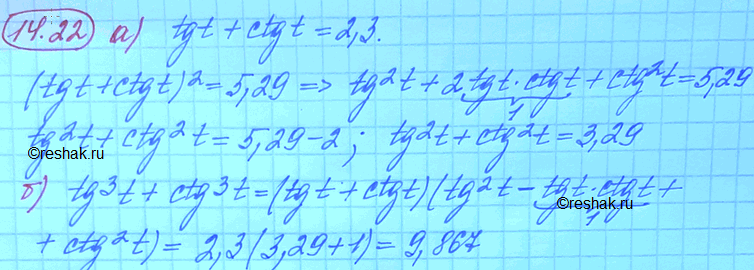 14.22 а) tgt + ctgt = 2,3.
(tgt + ctgt)² = 5,29 => tg²t + 2 tgt · ctgt + ctg²t = 5,29
1
tg²t + ctg²t = 5,29 - 2 ; tg²t + ctg²t = 3,29
©reshak.ru
б) tg³t + ctg³t = (tgt + ctgt)(tg²t - tgt · ctgt +
©reshak.ru
1
+ ctg²t) = 2,3(3,29+1) = 9,867